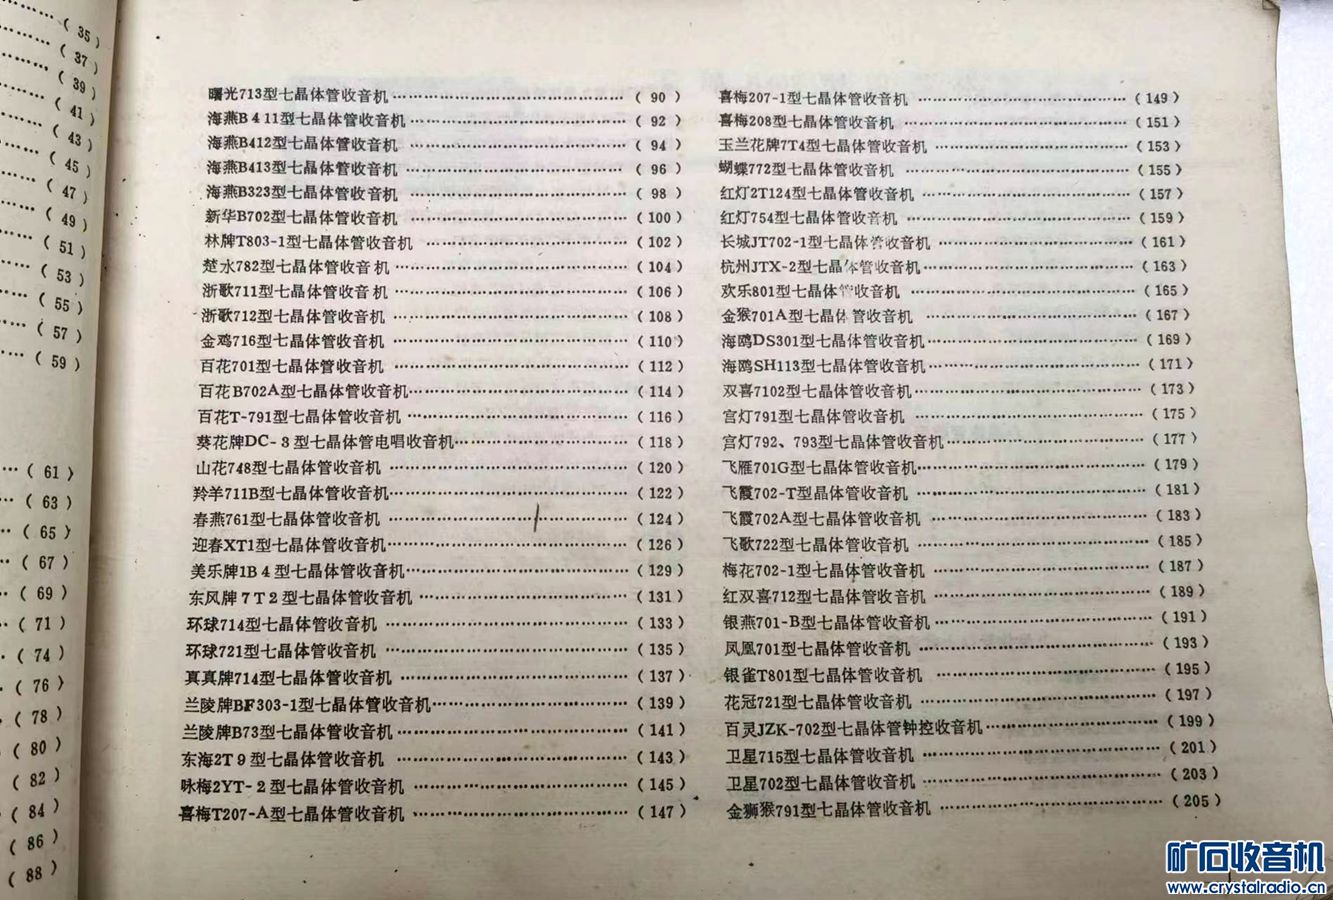 ( 35 )
( 37 )
( 39 )
( 41 )
( 43 )
( 45 )
( 47 )
( 49 )
( 51 )
( 53 )
( 55 )
( 57 )
( 59 )
( 61 )
( 63 )
( 65 )
( 67 )
( 69 )
( 71 )
( 74 )
( 76 )
( 78 )
( 80 )
( 82 )
( 84 )
( 86 )
( 88 )
曙光713型七晶体管收音机 ( 90 )
海燕B411型七晶体管收音机 ( 92 )
海燕B412型七晶体管收音机 ( 94 )
海燕B413型七晶体管收音机 ( 96 )
海燕B323型七晶体管收音机 ( 98 )
新华B702型七晶体管收音机 (100)
林牌T803-1型七晶体管收音机 (102)
楚水782型七晶体管收音机 (104)
浙歌711型七晶体管收音机 (106)
浙歌712型七晶体管收音机 (108)
金鸡716型七晶体管收音机 (110)
百花701型七晶体管收音机 (112)
百花B702A型七晶体管收音机 (114)
百花T-791型七晶体管收音机 (116)
葵花牌DC-3型七晶体管电唱收音机 (118)
山花748型七晶体管收音机 (120)
羚羊711B型七晶体管收音机 (122)
春燕761型七晶体管收音机 (124)
迎春XT1型七晶体管收音机 (126)
美乐牌1B4型七晶体管收音机 (129)
东风牌7T2型七晶体管收音机 (131)
环球714型七晶体管收音机 (133)
环球721型七晶体管收音机 (135)
真真牌714型七晶体管收音机 (137)
兰陵牌BF303-1型七晶体管收音机 (139)
兰陵牌B73型七晶体管收音机 (141)
东海2T9型七晶体管收音机 (143)
咏梅2YT-2型七晶体管收音机 (145)
喜梅T207-A型七晶体管收音机 (147)
喜梅207-1型七晶体管收音机 (149)
喜梅208型七晶体管收音机 (151)
玉兰花牌7T4型七晶体管收音机 (153)
蝴蝶772型七晶体管收音机 (155)
红灯2T124型七晶体管收音机 (157)
红灯754型七晶体管收音机 (159)
长城JT702-1型七晶体管收音机 (161)
杭州JTX-2型七晶体管收音机 (163)
欢乐801型七晶体管收音机 (165)
金猴701A型七晶体管收音机 (167)
海鸥DS301型七晶体管收音机 (169)
海鸥SH113型七晶体管收音机 (171)
双喜7102型七晶体管收音机 (173)
宫灯791型七晶体管收音机 (175)
宫灯792、793型七晶体管收音机 (177)
飞雁701G型七晶体管收音机 (179)
飞霞702-T型晶体管收音机 (181)
飞霞702A型七晶体管收音机 (183)
飞歌722型七晶体管收音机 (185)
梅花702-1型七晶体管收音机 (187)
红双喜712型七晶体管收音机 (189)
银燕701-B型七晶体管收音机 (191)
凤凰701型七晶体管收音机 (193)
银雀T801型七晶体管收音机 (195)
花冠721型七晶体管收音机 (197)
百灵JZK-702型七晶体管钟控收音机 (199)
卫星715型七晶体管收音机 (201)
卫星702型七晶体管收音机 (203)
金狮猴791型七晶体管收音机 (205)
矿石收音机
www.crystalradio.cn